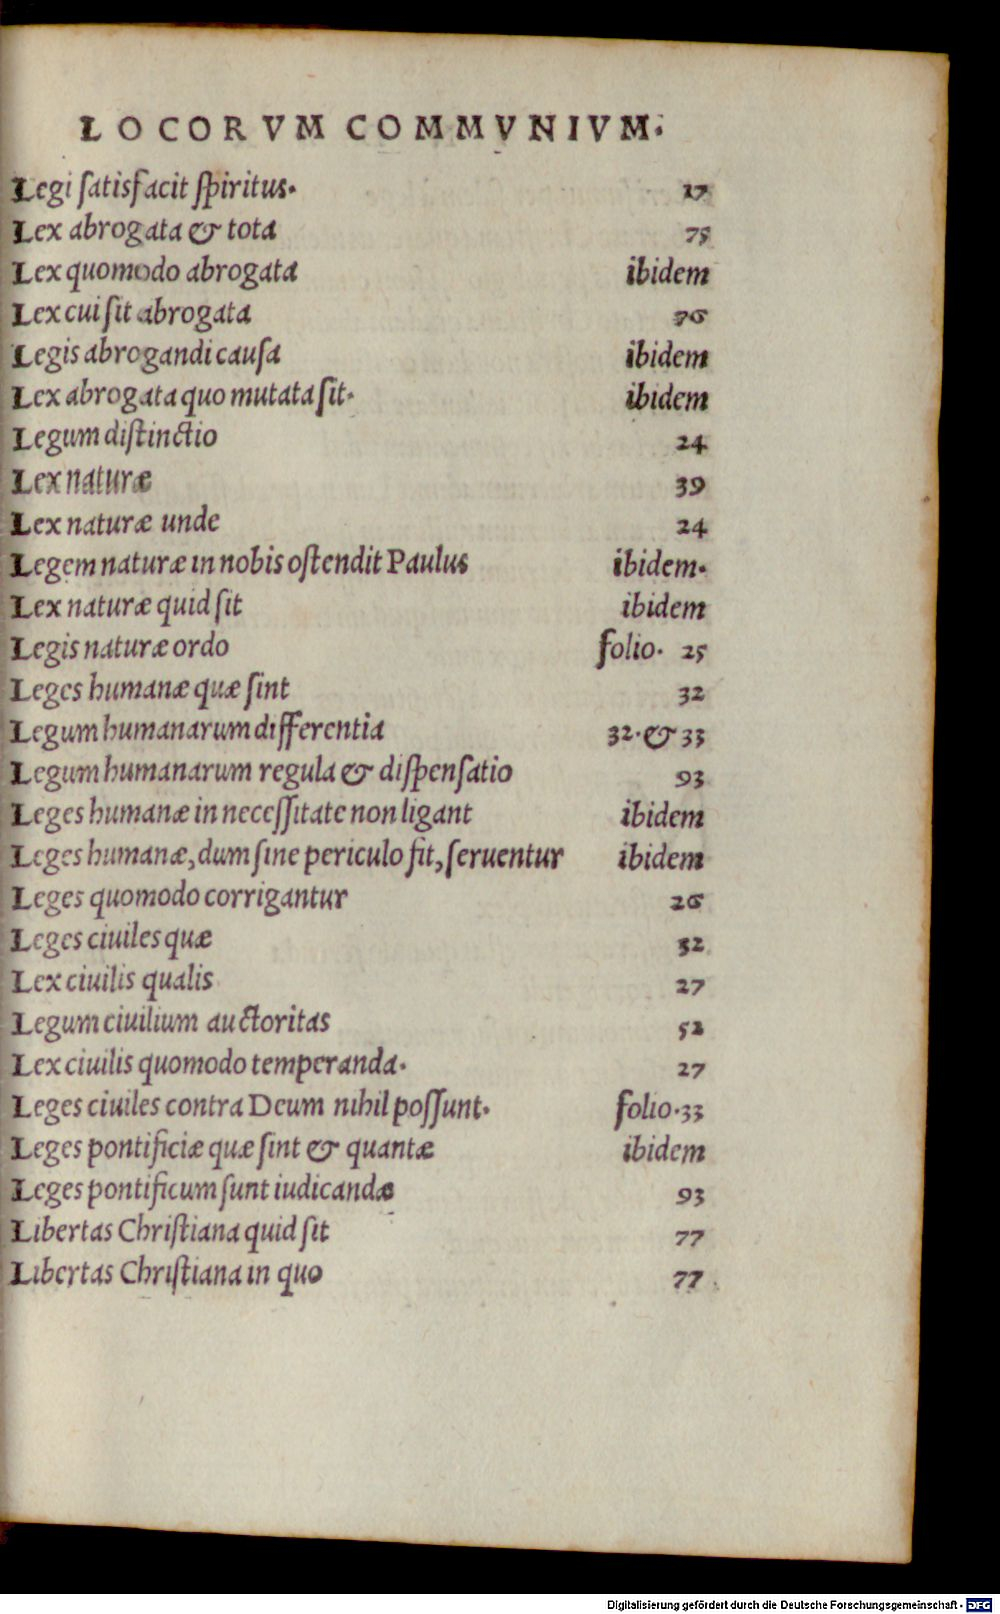 LOCORVM COMMVNIVM.
Legi ſatisfacit ſpiritus. 17
Lex abrogata & tota 75
Lex quomodo abrogata ibidem
Lex cui ſit abrogata 76
Legis abrogandi cauſa ibidem
Lex abrogata quo mutata ſit. ibidem
Legum diſtinctio 24
Lex naturæ 39
Lex naturæ unde 24
Legem naturæ in nobis oſtendit Paulus ibidem.
Lex naturæ quid ſit ibidem
Legis naturæ ordo folio. 25
Leges humanæ quæ ſint 32
Legum humanarum differentia 32. & 33
Legum humanarum regula & diſpenſatio 93
Leges humanæ in neceſſitate non ligant ibidem
Leges humanæ, dum ſine periculo fit, ſeruentur ibidem
Leges quomodo corrigantur 26
Leges ciuiles quæ 32
Lex ciuilis qualis 27
Legum ciuilium auctoritas 52
Lex ciuilis quomodo temperanda. 27
Leges ciuiles contra Deum nihil poſſunt. folio. 33
Leges pontificiæ quæ ſint & quantæ ibidem
Leges pontificum ſunt iudicandæ 93
Libertas Chriſtiana quid ſit 77
Libertas Chriſtiana in quo 77
Digitalisierung gefördert durch die Deutsche Forschungsgemeinschaft - DFG